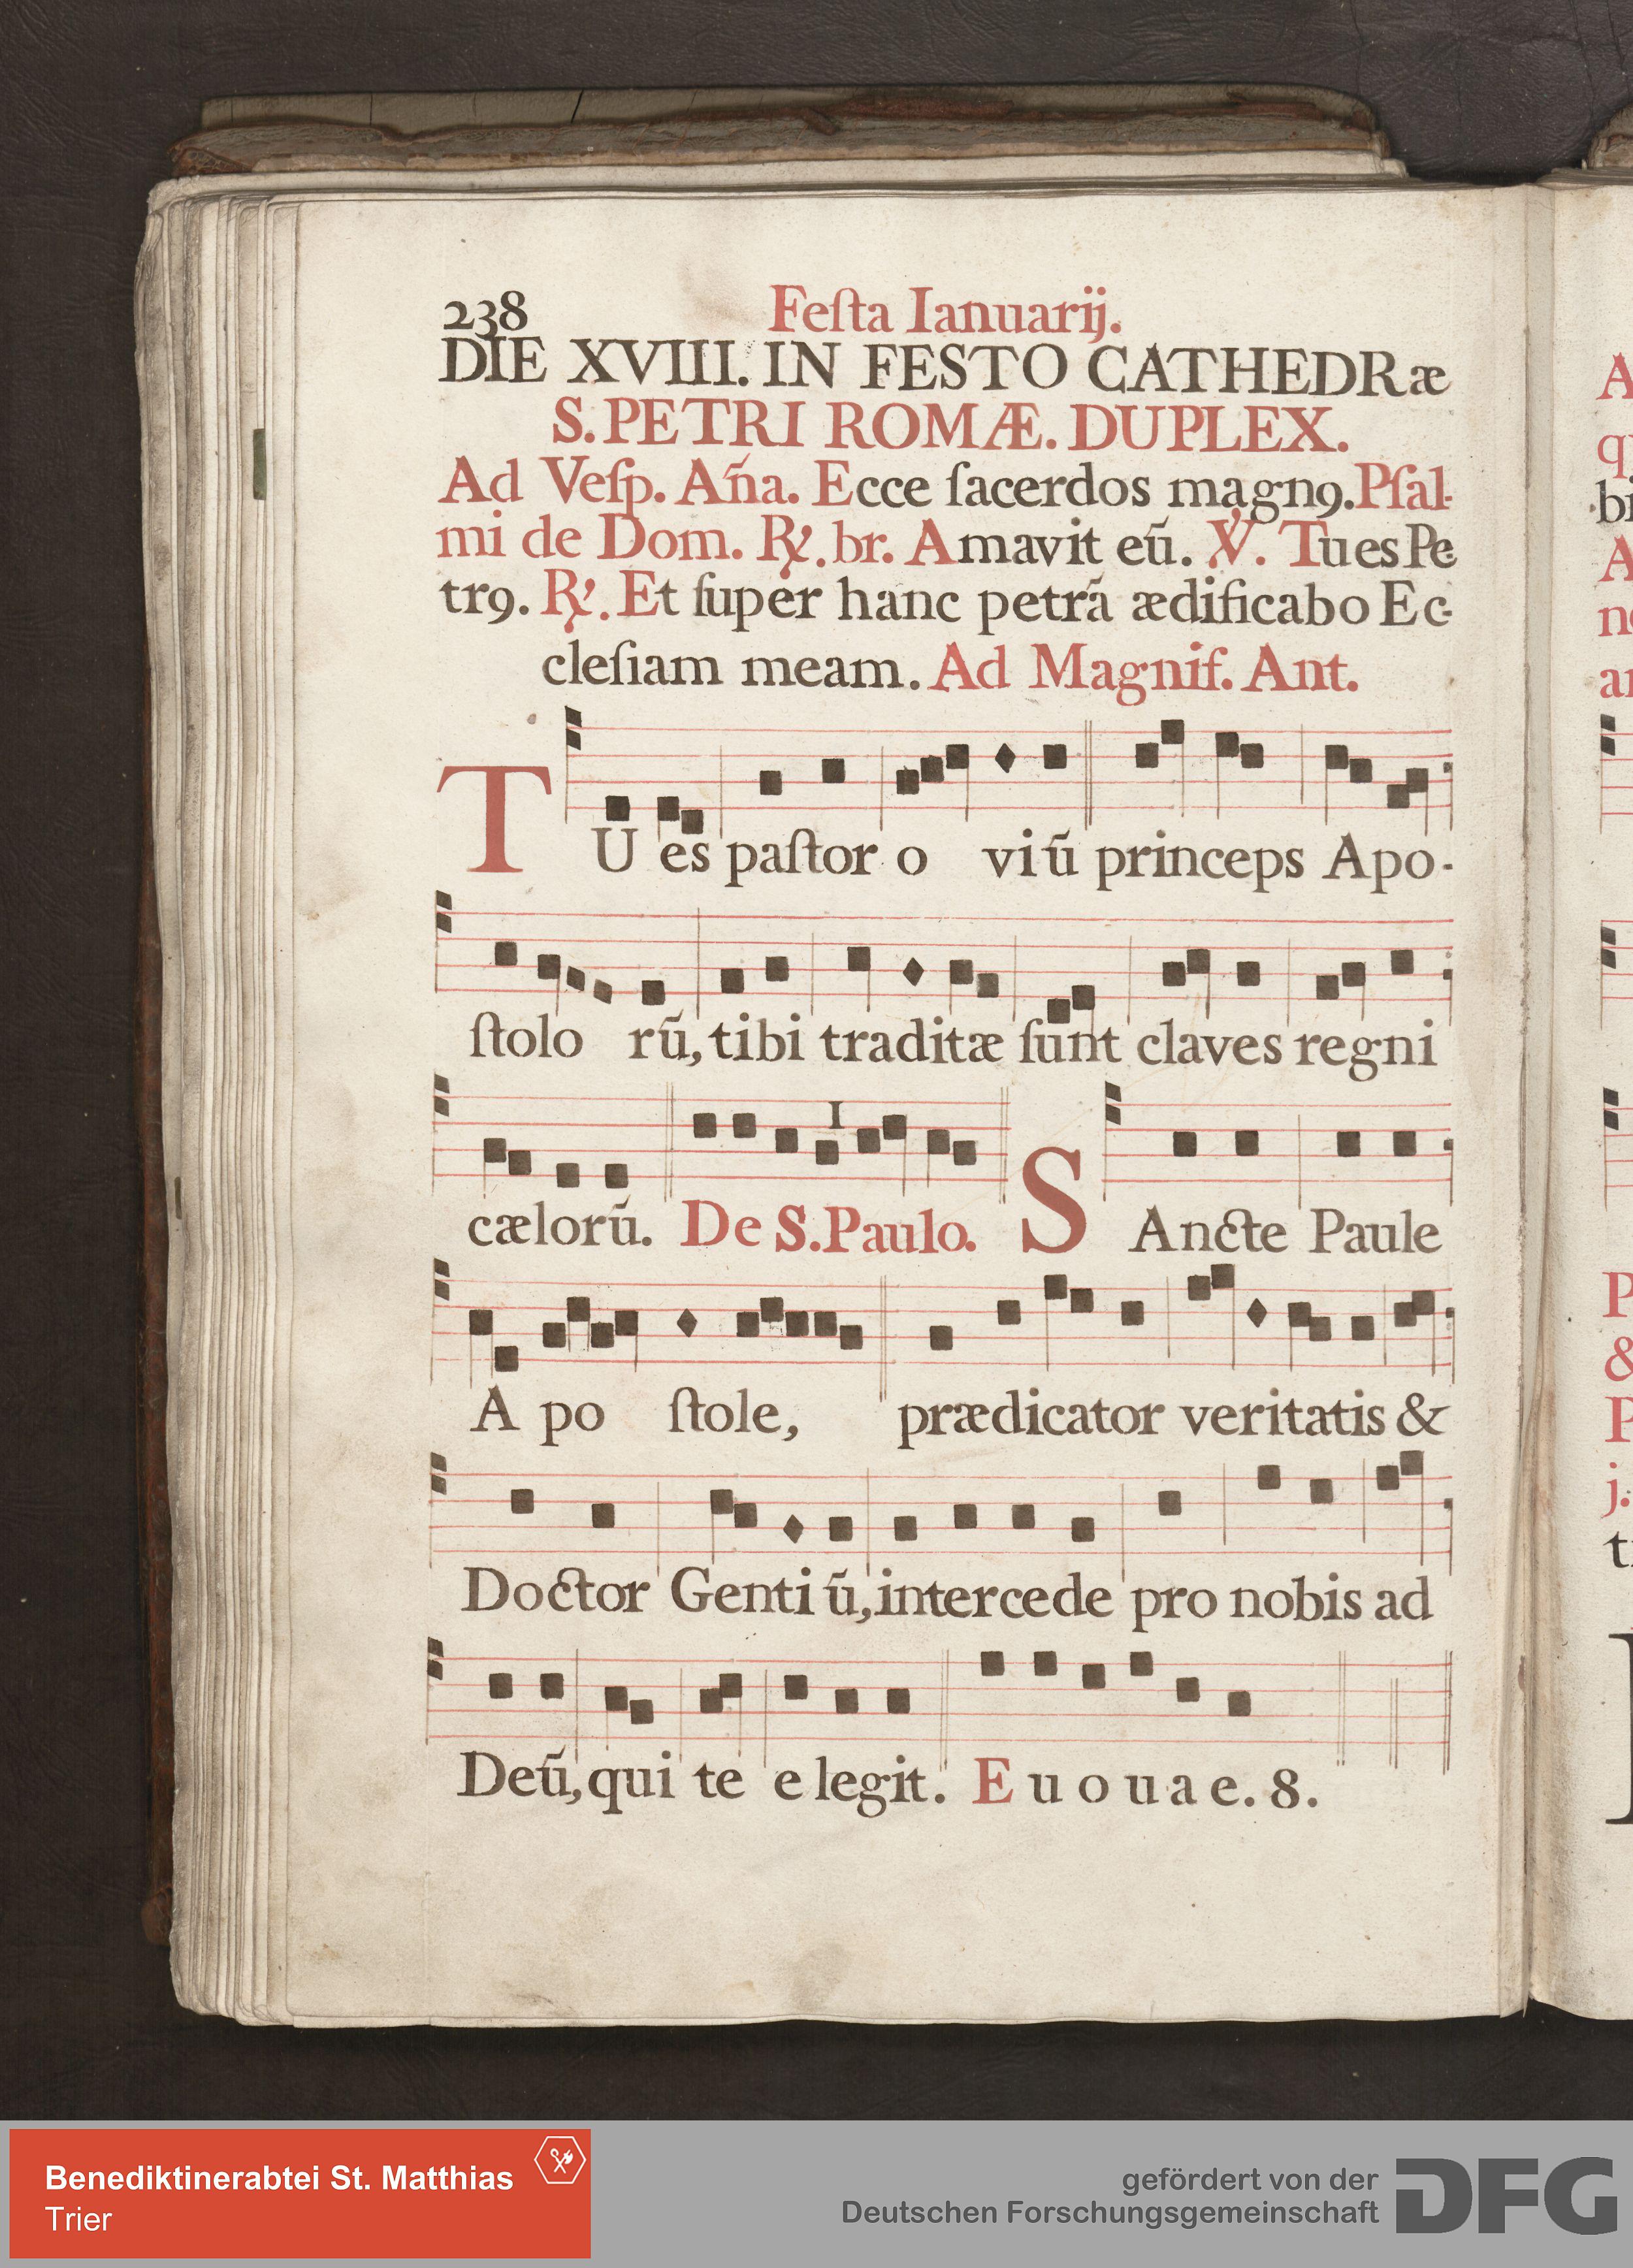 238 Feſta Ianuarij.
DIE XVIII. IN FESTO CATHEDRæ
S. PETRI ROMÆ. DUPLEX.
Ad Veſp. Añа. Ecce ſacerdos magnꝰ. Pſal-
mi de Dom. ℟. br. Amavit eũ. ℣. Tu es Pe-
trꝰ. ℟. Et ſuper hanc petrã ædificabo Ec-
cleſiam meam. Ad Magnif. Ant.
TU es paſtor o viũ princeps Apo-
ſtolo rũ, tibi traditæ ſunt claves regni
cælorũ. De S. Paulo. SAncte Paule
A po ſtole, prædicator veritatis &
Doctor Genti ũ, intercede pro nobis ad
Deũ, qui te e legit. E u o u a e. 8.
Benediktinerabtei St. Matthias
Trier
gefördert von der
Deutschen Forschungsgemeinschaft
DFG